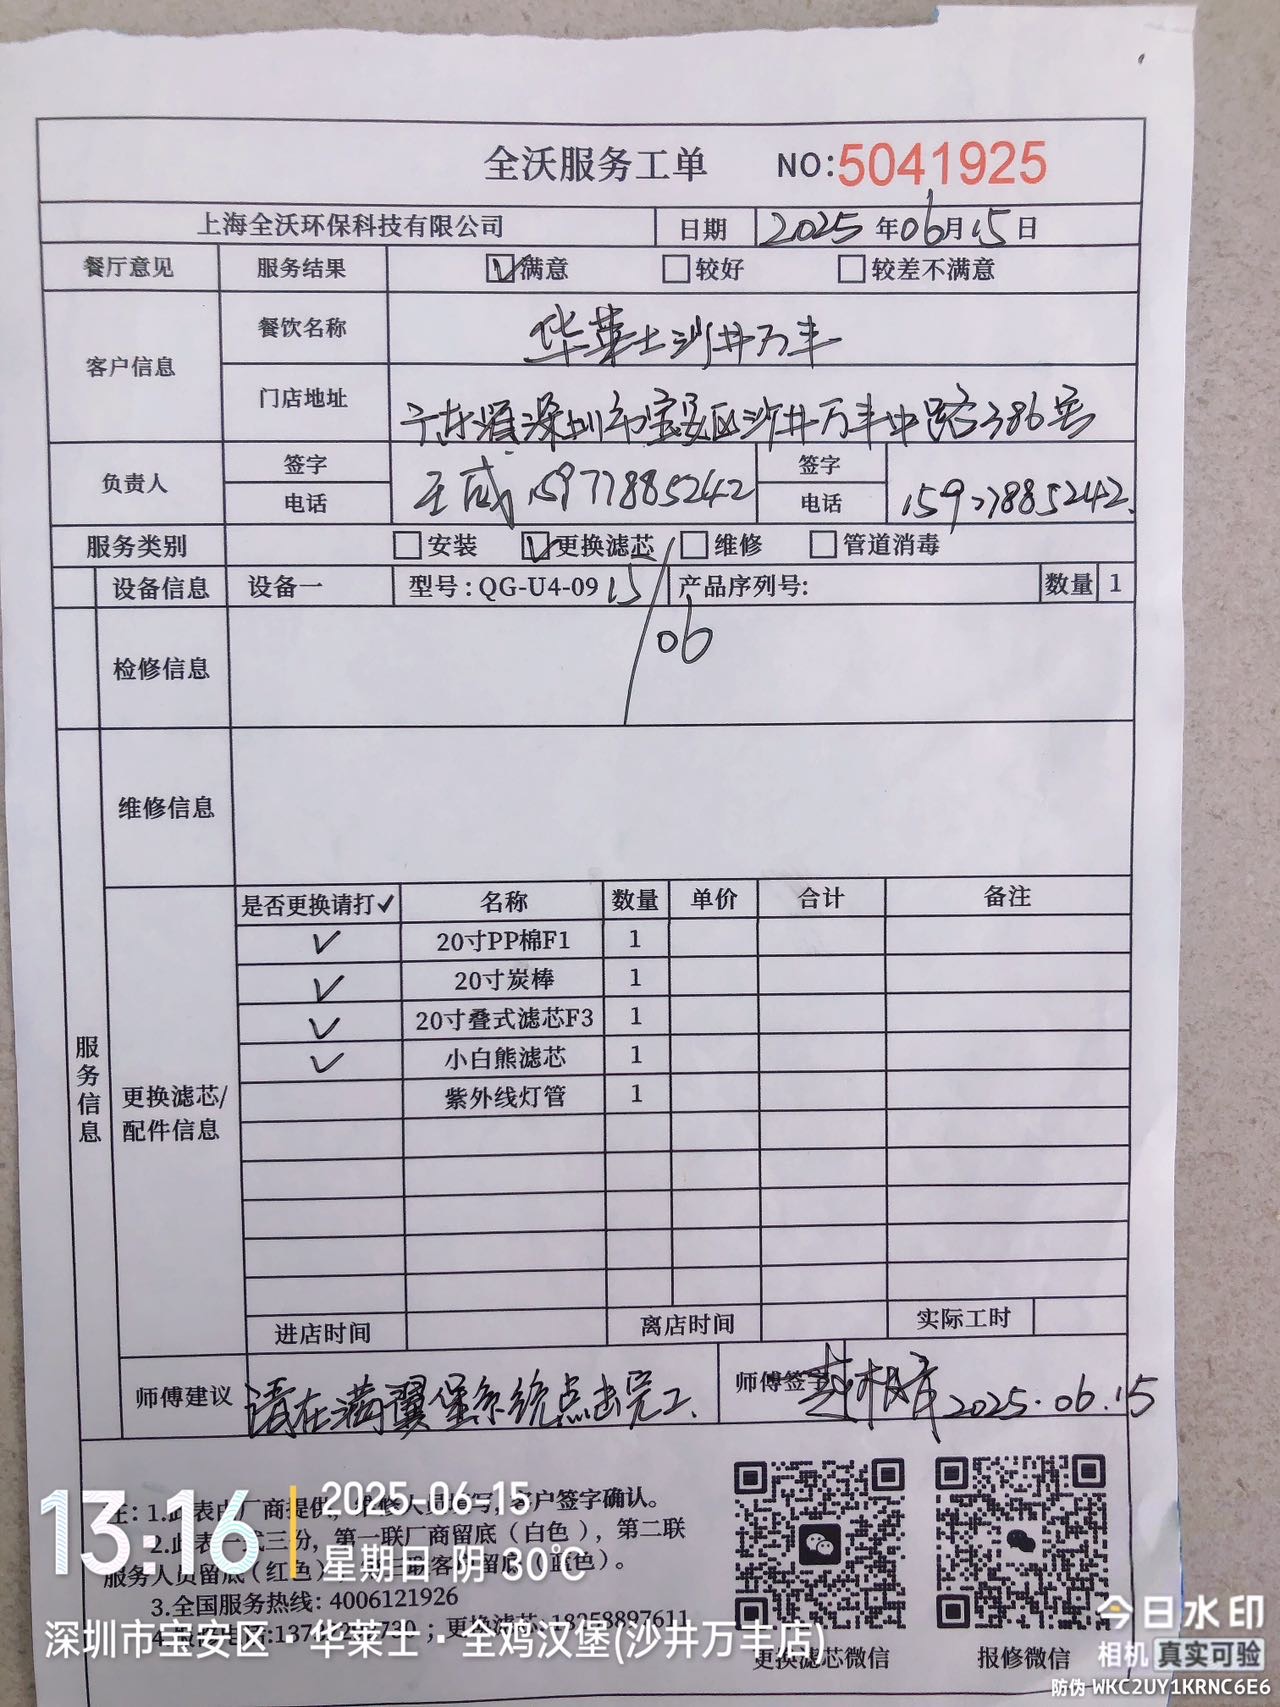 全沃服务工单 NO:5041925
上海全沃环保科技有限公司 日期 2025年06月15日
餐厅意见 服务结果 满意 较好 较差不满意
客户信息 餐饮名称 华莱士沙井万丰
门店地址 广东省深圳市宝安区沙井万丰中路386号
负责人 签字 电话 王威 15977885242 签字 电话 15977885242
服务类别 安装 更换滤芯 维修 管道消毒
设备信息 设备一 型号:QG-U4-09 产品序列号: 数量 1
15/06
检修信息
维修信息
服务信息
更换滤芯/配件信息
是否更换请打✓ 名称 数量 单价 合计 备注
✓ 20寸PP棉F1 1
✓ 20寸炭棒 1
✓ 20寸叠式滤芯F3 1
✓ 小白熊滤芯 1
紫外线灯管 1
进店时间 离店时间 实际工时
师傅建议 请在满翼堡系统点击完工、 师傅签字 2025.06.15
注:1.此表由厂商提供,维修人员填写,客户签字确认。
2.此表一式三份,第一联厂商留底(白色),第二联
服务人员留底(红色),第三联客户留底(蓝色)。
3.全国服务热线:4006121926
更换滤芯:18258897611
更换滤芯微信 报修微信
13:16 2025-06-15
星期日·阴 30℃
深圳市宝安区·华莱士·全鸡汉堡(沙井万丰店)
今日水印
相机 真实可验
防伪 WKC2UY1KRNC6E6